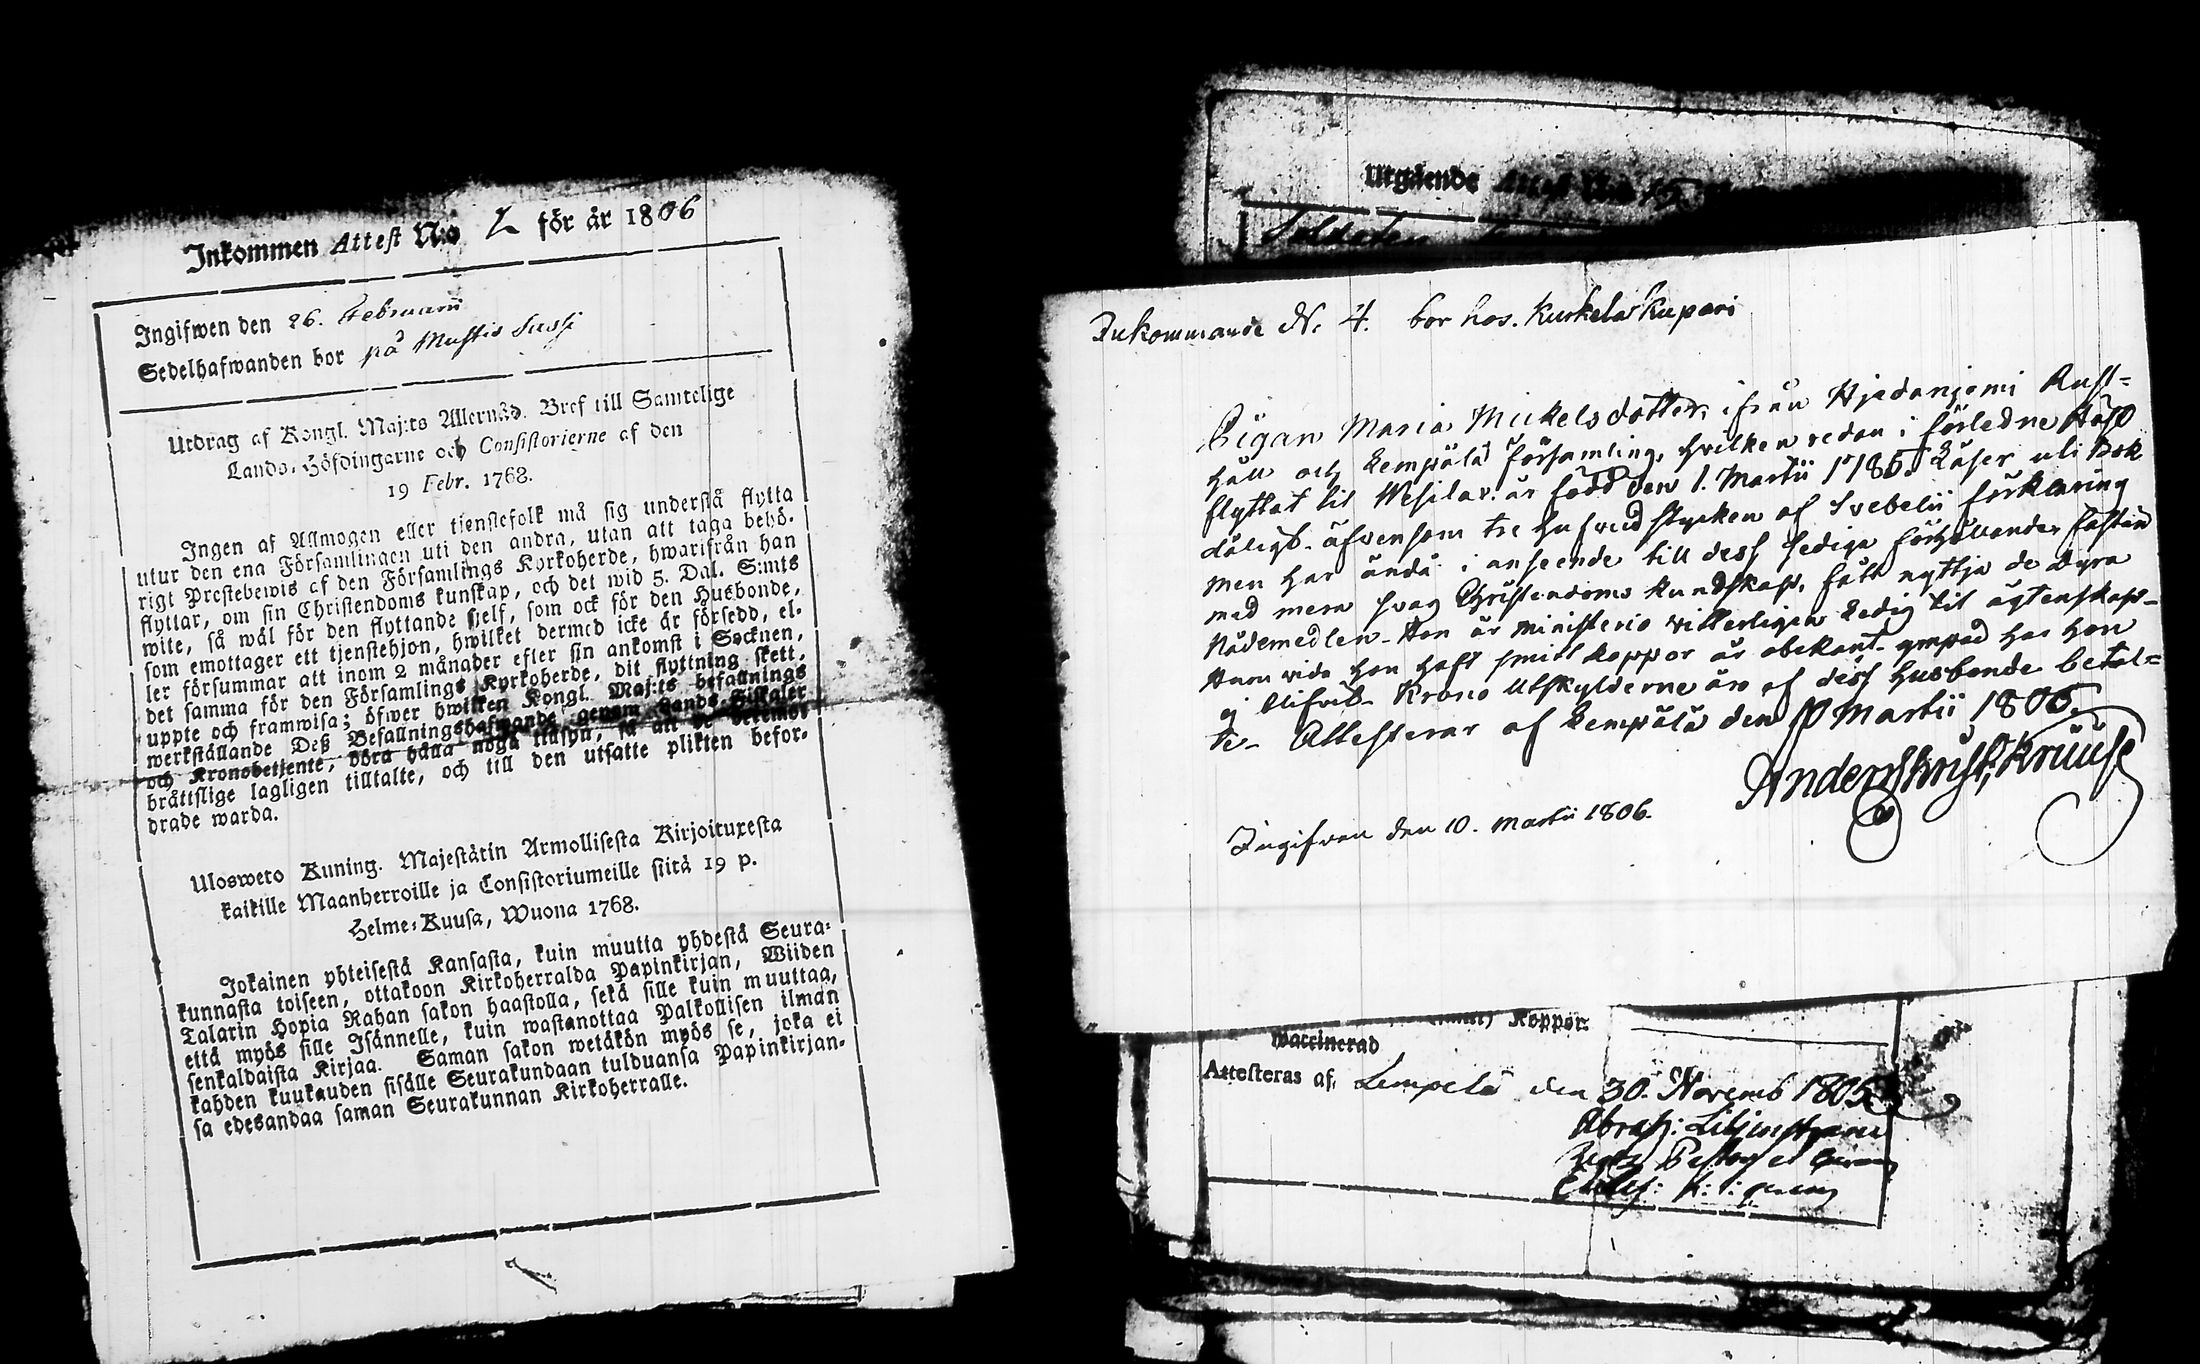 Inkommen Attest N:o 2 för år 1806
Ingifwen den 26. Februarii
Sedelhafwanden bor på Mustis Sussi
Utdrag af Kongl. Maj:ts Allernåd. Bref till Samtelige
Lands-Höfdingarne och Consistorierne af den
19 Febr. 1768.
Ingen af Allmogen eller tjenstefolk må sig understå flytta
utur den ena Församlingen uti den andra, utan att taga behö-
rigt Prestebewis af den Församlings Kyrkoherde, hwarifrån han
flyttar, om sin Christendoms kunskap, och det wid 5. Dal. S:mts
wite, så wäl för den flyttande sjelf, som ock för den Husbonde,
som emottager ett tjenstehjon, hwilket dermed icke är försedd, el-
ler försummar att inom 2 månader efter sin ankomst i Socknen,
det samma för den Församlings Kyrkoherde, dit flyttning skett,
uppte och framwisa; öfwer hwilken Kongl. Maj:ts befallnings
werkställande Deß Befallningshafwande genom Lands-Fiskaler
och Kronobetjente, böra hålla noga tillsyn, så att de
bråttslige lagligen tilltalte, och till den utsatte plikten befor-
drade warda.
Ulosweto Kuning. Majestätin Armollisesta Kirjoituxesta
kaikille Maanherroille ja Consistoriumeille siitä 19 p.
Helme-Kuusa, Wuona 1768.
Jokainen yhteisestä Kansasta, kuin muutta yhdestä Seura-
kunnasta toiseen, ottakoon Kirkoherralda Papinkirjan, Wiiden
Talarin Hopia Rahan sakon haastolla, sekä sille kuin muuttaa,
että myös sille Isännelle, kuin wastanottaa Palkollisen ilman
senkaldaista Kirjaa. Saman sakon wetäkön myös se, joka ei
kahden kuukauden sisälle Seurakundaan tulduansa Papinkirjan-
sa edesandaa saman Seurakunnan Kirkoherralle.
Utgående Attest N:o
Soldaten
Inkommande N. 4. bor hos. Kurkela Kupari
Pigan Maria Mickelsdotter, ifrån Hjedanjemi Rust-
håll och Lempälä Församling, hvilken redan i förledne Höst
flyttat til Wesilax. är född den 1. Martii 1785. Läser uti Bok
dåligt. äfvensom tre hufvud stycken af Svebelii förklaring
men har ändå i anseende till dess sediga förhållander fastän
med mera svag Christendoms kundskap, fått nyttja de dyra
Nådemedlen. Hon är ministerio vitterligen Ledig til ägtenskap-
Hum vida hon haft smitt koppor är obekant. ympad har hon
ej blifvit. Krono Utskylderne äro af dess husbonde betal-
te. Attesterar af Lempälä den 10 Martii 1806.
Anders Krist. Kruuse
Ingifven den 10. Martii 1806.
Koppor.
waccinerad
Attesteras af Lempelä den 30. Novemb 1805
Abrah: Liljenstrand